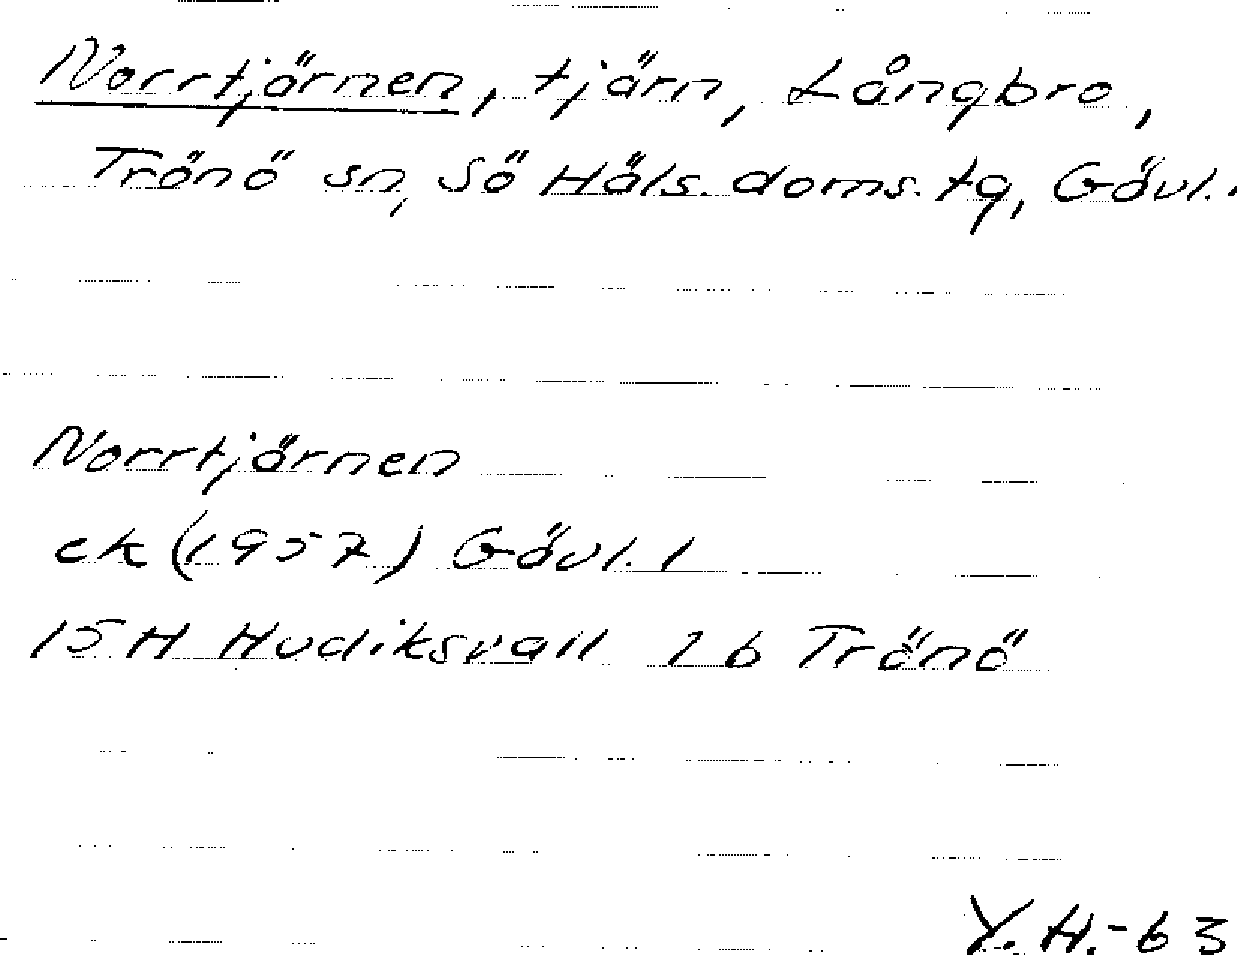 Norrtjärnen, tjärn, Långbro,
Trönö sn, Sö Häls. doms. tg, Gävl. l
Norrtjärnen
ek (1957) Gävl. l
15H Hudiksvall 1b Trönö
Y.H.-63